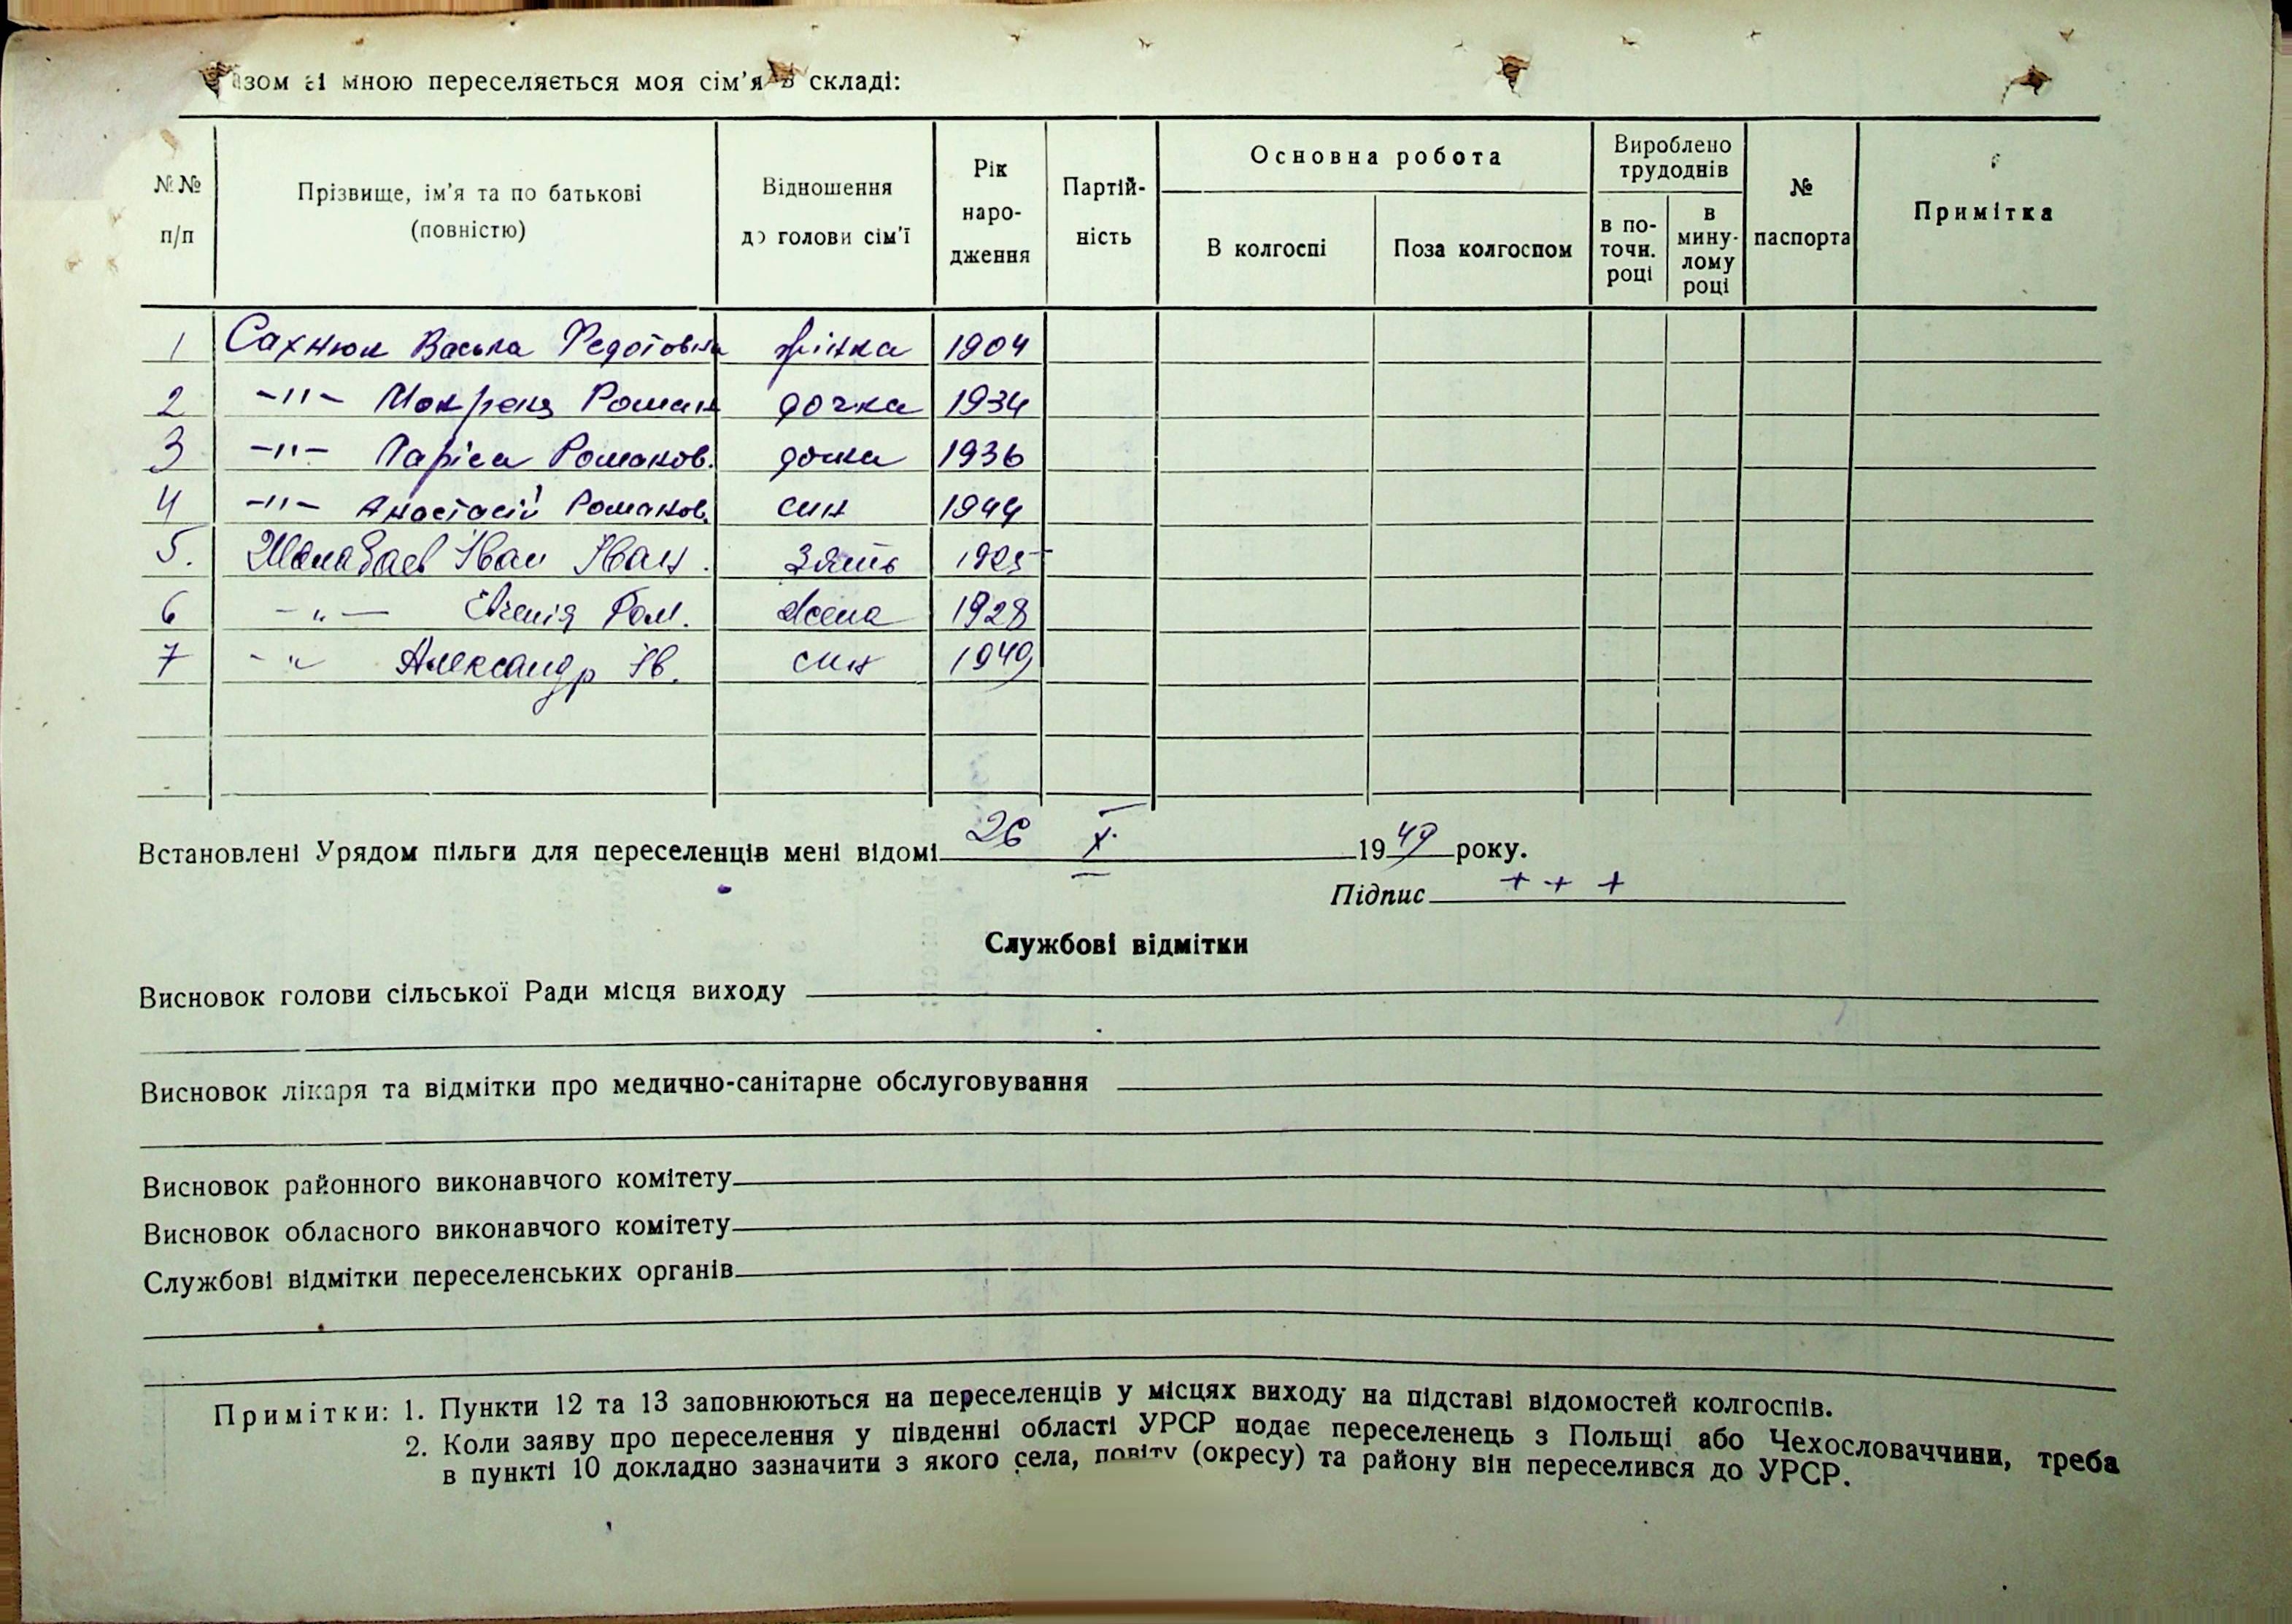 азом зі мною переселяється моя сім'я в складі:
№№ п/п
Прізвище, ім'я та по батькові (повністю)
Відношення до голови сім'ї
Рік народження
Партійність
Основна робота
В колгоспі
Поза колгоспом
Вироблено трудоднів
в поточн. році
в минулому році
№ паспорта
Примітка
1 Сахнюк Васька Федотовна жінка 1904
2 -"- Мокрена Роман дочка 1934
3 -"- Ларіса Романов. дочка 1936
4 -"- Анастасій Романов. син 1944
5. Іван Іван. Зять 1925
6 -"- Евгенія Ром. Жена 1928
7 -"- Александр Ів. син 1949
Встановлені Урядом пільги для переселенців мені відомі 26 X 1949 року.
Підпис + + +
Службові відмітки
Висновок голови сільської Ради місця виходу
Висновок лікаря та відмітки про медично-санітарне обслуговування
Висновок районного виконавчого комітету
Висновок обласного виконавчого комітету
Службові відмітки переселенських органів
Примітки: 1. Пункти 12 та 13 заповнюються на переселенців у місцях виходу на підставі відомостей колгоспів.
2. Коли заяву про переселення у південні області УРСР подає переселенець з Польщі або Чехословаччини, треба
в пункті 10 докладно зазначити з якого села, повіту (окресу) та району він переселився до УРСР.